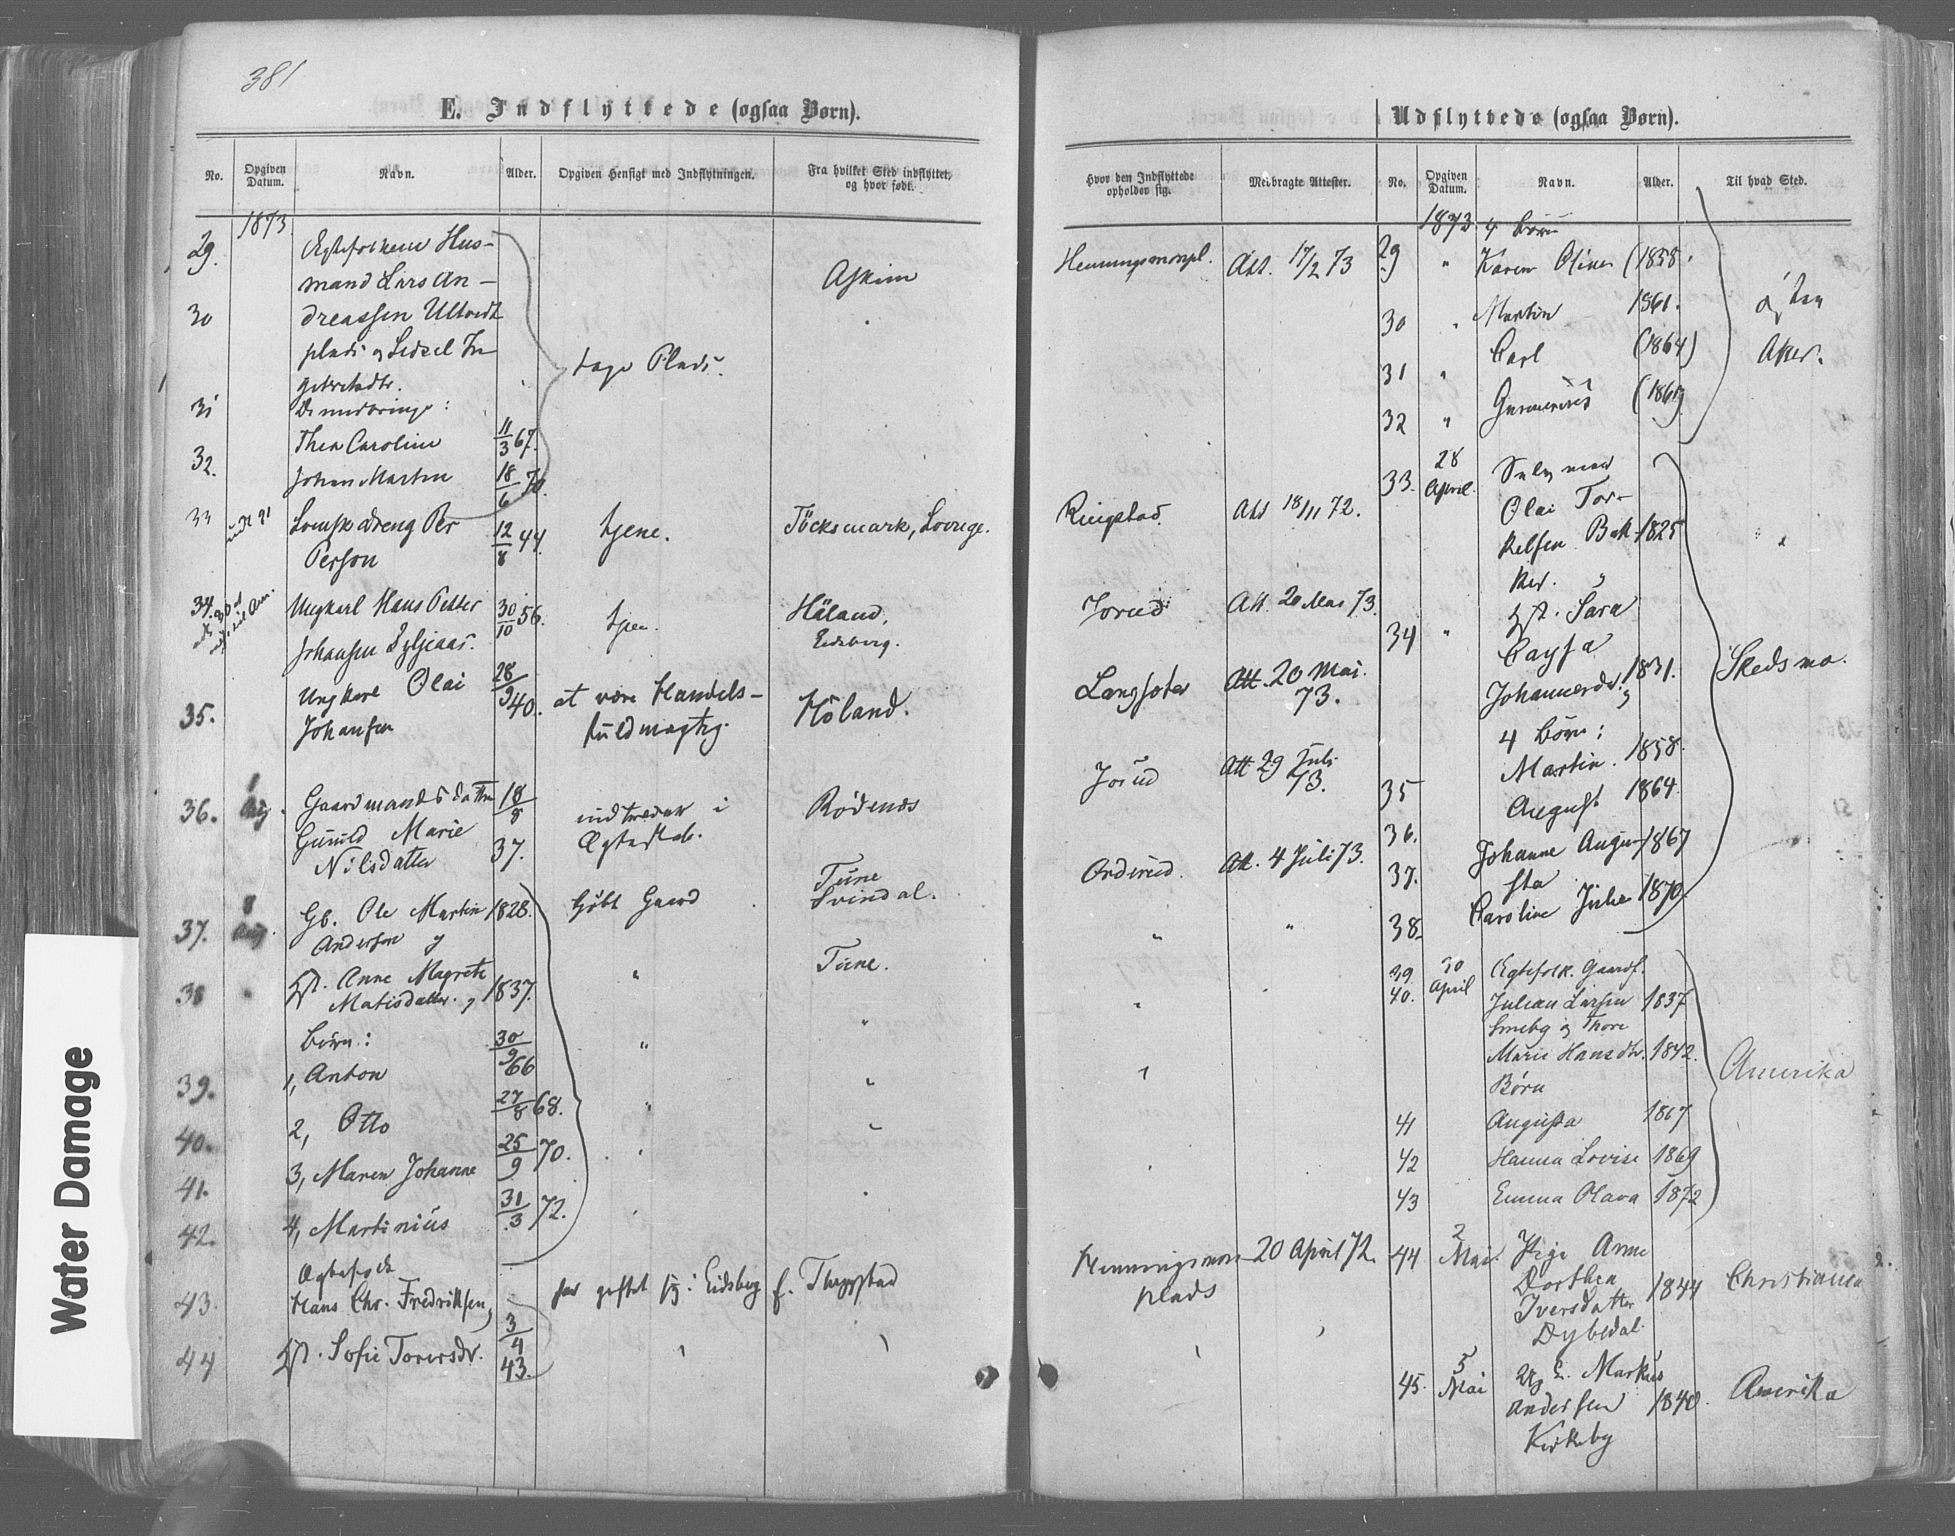 381
E. Indflyttede (ogsaa Børn).
No.
Opgiven Datum.
Navn.
Alder.
Opgiven Hensigt med Indflytningen.
Fra hvilket Sted indflyttet, og hvor født.
1873.
29.
Ægtefolkene Hus-
mand Lars An-
30
dreassen Ultvedt
plads og Sidsel In
31
De medbringe:
32.
Thea Caroline 11/3 67.
Johan Martin 18/6 70.
tage Plads.
Askim
33
Svensk dreng Per
Person
12/8 44.
tjene.
Töcksmark, Sverige.
34.
Ungkarl Hans Petter
Johansen
30/10 56.
tjen.
Höland,
Eidsberg.
35.
Ungkarl Olai
Johansen
28/9 40.
at være Handels-
fuldmægtig.
Höland.
36.
1 Aug.
Gaardmandsdatter
Gunild Marie
Nilsdatter
18/8 37.
indtræder i
Ægteskab.
Rødenæs
37.
8 Aug.
Gb. Ole Martin
Andersen og
1828.
kjøbt Gaard
Tune
Svindal.
38 "
Hst. Anne Magrete
Matisdatter. og
1837.
"
Tune.
Børn:
39.
1, Anton 30/9 66
"
40.
2, Otto 27/8 68.
"
41.
3, Maren Johanne 25/9 70.
"
42.
4, Martinius 31/3 72.
43.
Hans Chr. Fredriksen,
har giftet sig i Eidsberg
f. Thrygstad
44
Hst. Sofie Torersdr. 3/4 43.
Udflyttede (ogsaa Børn).
Hvor den Indflyttede opholder sig.
Medbragte Attester.
No.
Opgiven Datum.
Navn.
Alder.
Til hvad Sted.
Henningsmonpl.
Att. 17/2 73
Ringstad.
Att 18/11 72.
Jorud
Att. 20 Mai 73.
Langsæter
Att. 20 Mai
73.
Jorud
Att. 29 Juli
73.
Orderud.
Att. 4 Juli 73.
" "
Henningsmon
plads
20 April 72.
1873
4 Børn
29 " Karen Oline (1858.
30 " Martin 1861.
31 " Carl (1864)
32 "
Aker.
33.
28 April
Olai Tor-
kelsen Bak-
ker.
1825
34 "
Hst. Sara
Caysa
Johannesdr. og
1831.
4 Børn:
35 Martin. 1858.
36. August 1864.
37. Johanne Augu-
sta
1867
38. Caroline Julie 1870.
Skedsmo.
39
40.
30 April
Ægtefolk. Gaardf.
Julian Larsen 1837
Smeby og Thore
Marie Hansdtr. 1842.
Børn
41 Augusta 1867
42 Hanna Lovise 1869
43 Emma Olava 1872
Amerika
44
2 Mai.
Pige Anne
Dorthea
Iversdatter
Dybedal
1844
Christiania
45.
5 Mai
Markus
Andersen
Kirkeby
1840.
Amerika
Water Damage